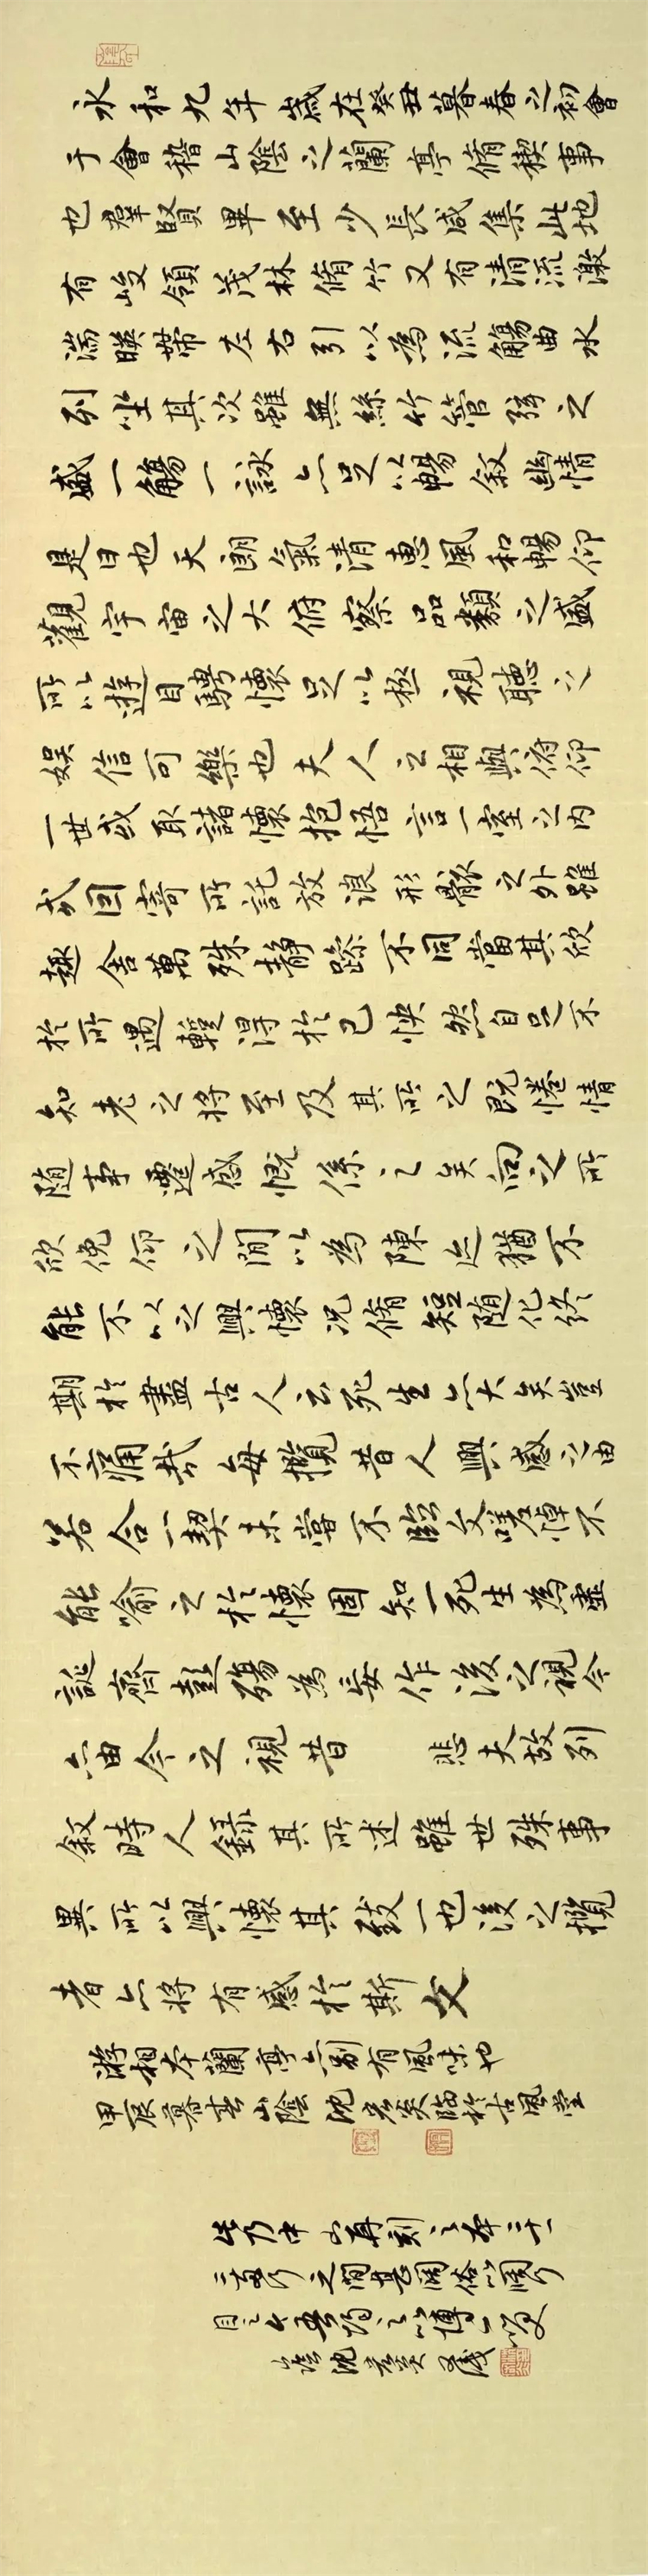 永和九年歲在癸丑暮春之初會
于會稽山陰之蘭亭脩稧事
也羣賢畢至少長咸集此地
有峻領茂林脩竹又有清流激
湍暎帶左右引以為流觴曲水
列坐其次雖無絲竹管弦之
盛一觴一詠亦足以暢叙幽情
是日也天朗氣清惠風和暢仰
觀宇宙之大俯察品類之盛
所以遊目騁懷足以極視聽之
娛信可樂也夫人之相與俯仰
一世或取諸懷抱悟言一室之內
或因寄所託放浪形骸之外雖
趣舍萬殊靜躁不同當其欣
於所遇蹔得於己怏然自足不
知老之將至及其所之既惓情
随事遷感慨係之矣向之所
欣俛仰之間以為陳迹猶不
能不以之興懷況脩短随化終
期於盡古人云死生亦大矣豈
不痛哉每攬昔人興感之由
若合一契未嘗不臨文嗟悼不
能喻之於懷固知一死生為虛
誕齊彭殤為妄作後之視今
亦由今之視昔 悲夫故列
叙時人錄其所述雖世殊事
異所以興懷其致一也後之攬
者亦將有感於斯文
游相本蘭亭亦別有風味也
甲辰暮春山陰沈 臨於古風堂
此乃中山再刻之本二十一
之間甚闊俗以闊行
目之今吾 之以博一笑
山陰沈 又識